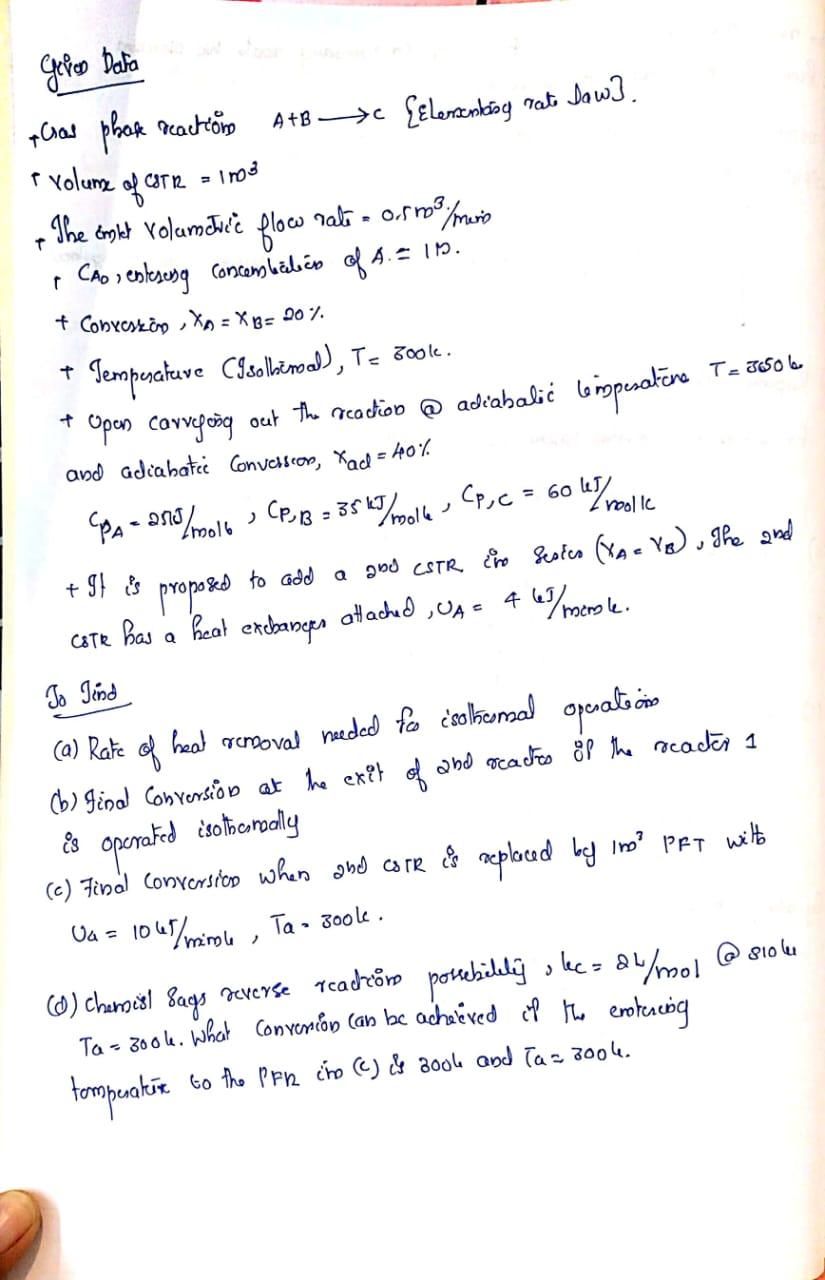 Given Data
+ Gas phase reaction A+B → C {Elementary rate law}.
+ Volume of CSTR = 1 m³
+ The inlet Volumetric flow rate = 0.5 m³/min
+ CAO, entering concentration of A = 1 M.
+ Conversion, XA = XB = 20 %.
+ Temperature (Isothermal), T = 300k.
+ Upon carrying out the reaction @ adiabatic temperature T = 350 k
and adiabatic Conversion, Xad = 40%
CPA = J/molk, CP,B = 35 kJ/molk, CP,C = 60 kJ/molk
+ It is proposed to add a 2nd CSTR in series (XA = XB), The 2nd
CSTR has a heat exchanger attached, UA = 4 kJ/min k.
To Find
(a) Rate of heat removal needed for isothermal operation
(b) Final Conversion at the exit of 2nd reactor if the reactor 1
is operated isothermally
(c) Final Conversion when 2nd CSTR is replaced by 1m³ PFT with
Ua = 10 kJ/min k, Ta = 300k.
(d) Chemist says reverse reaction possibility, kc = 2L/mol @ 310k
Ta = 300k. What Conversion can be achieved if the entering
temperature to the PFR in (c) is 300k and Ta = 300k.